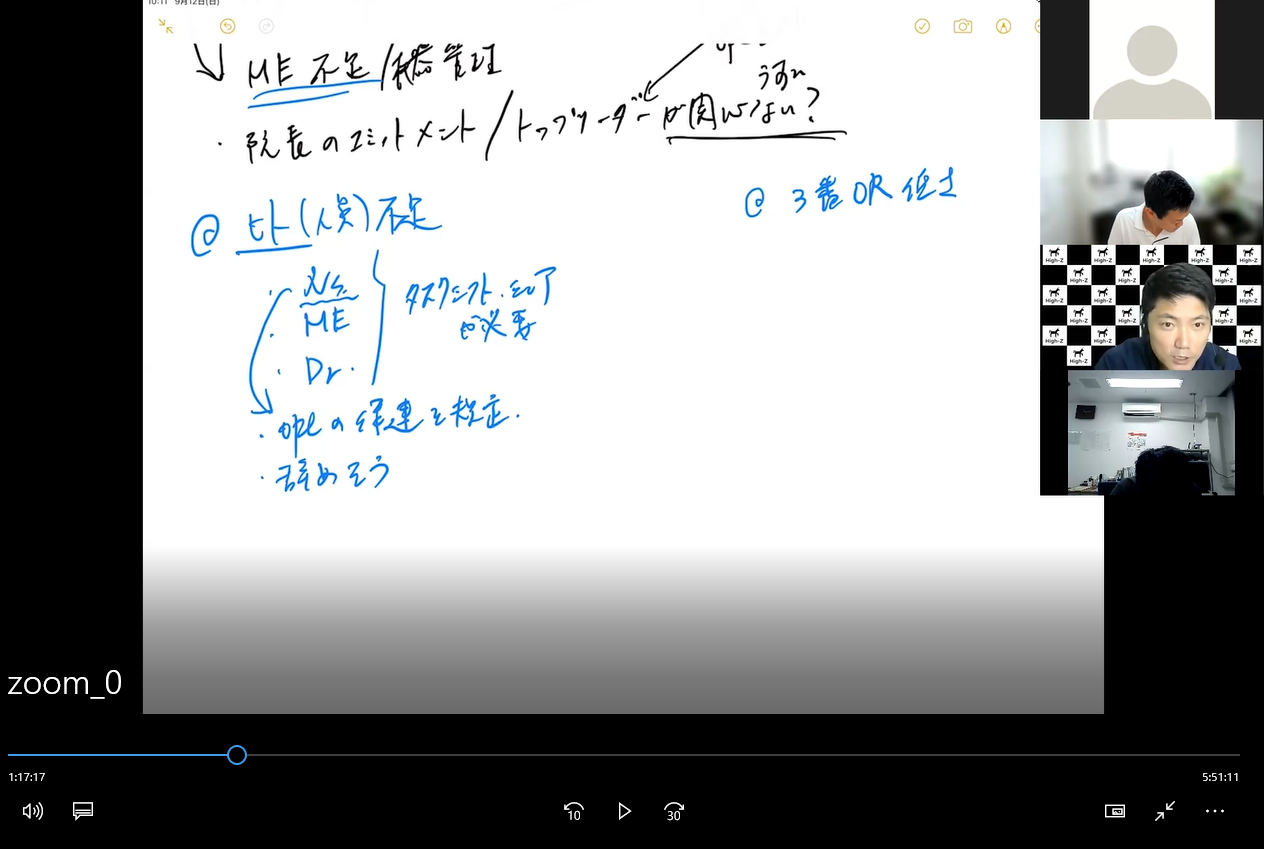 10:11 9月12日(日)
ME 不足/機器管理
うすい
・院長のコミットメント/トップリーダーが関いてない?
@ ヒト(人員)不足
@ 3番OR 低さ
・Ns.
・ME
・Dr.
タスクシフト・シェア
が必要
・opeの件連を規定.
・辞めそう
High-Z
zoom_0
1:17:17
5:51:11
10
30